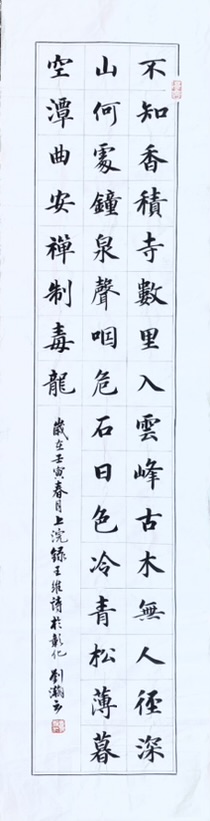 不知香積寺數里入雲峰古木無人徑深
山何處鐘泉聲咽危石日色冷青松薄暮
空潭曲安禪制毒龍
歲在壬寅春月上浣錄王維詩於彰化 劉瀚云